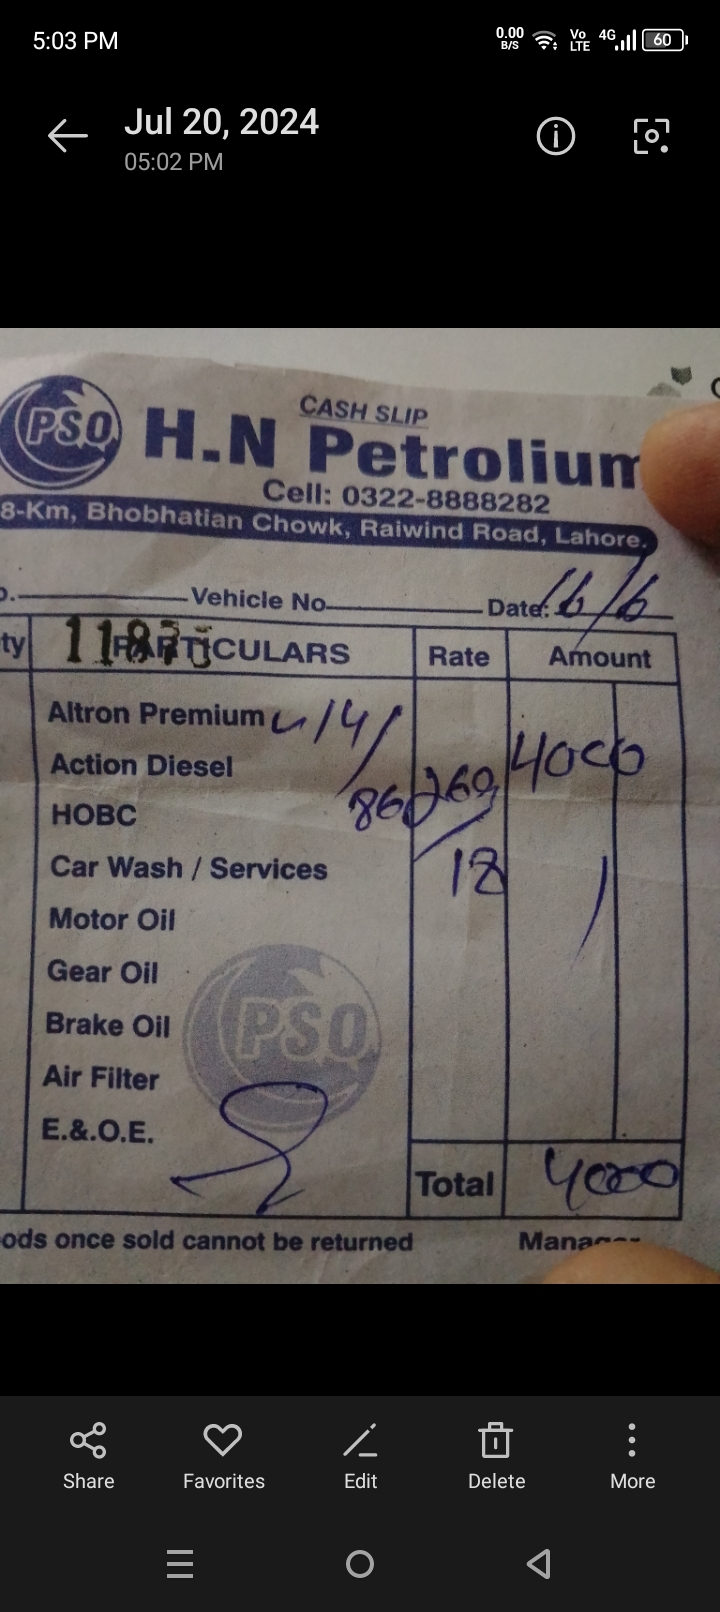 5:03 PM 0.00 B/S Vo LTE 4G 60
Jul 20, 2024
05:02 PM
CASH SLIP
PSO H.N Petrolium
Cell: 0322-8888282
8-Km, Bhobhatian Chowk, Raiwind Road, Lahore.
Vehicle No. Date: 16/6
ty PARTICULARS Rate Amount
1187
Altron Premium 14/ 4000
Action Diesel
HOBC 86 269
Car Wash / Services 18
Motor Oil
Gear Oil
PSO
Brake Oil
Air Filter
E.&.O.E.
Total 4000
ods once sold cannot be returned Manager
Share Favorites Edit Delete More